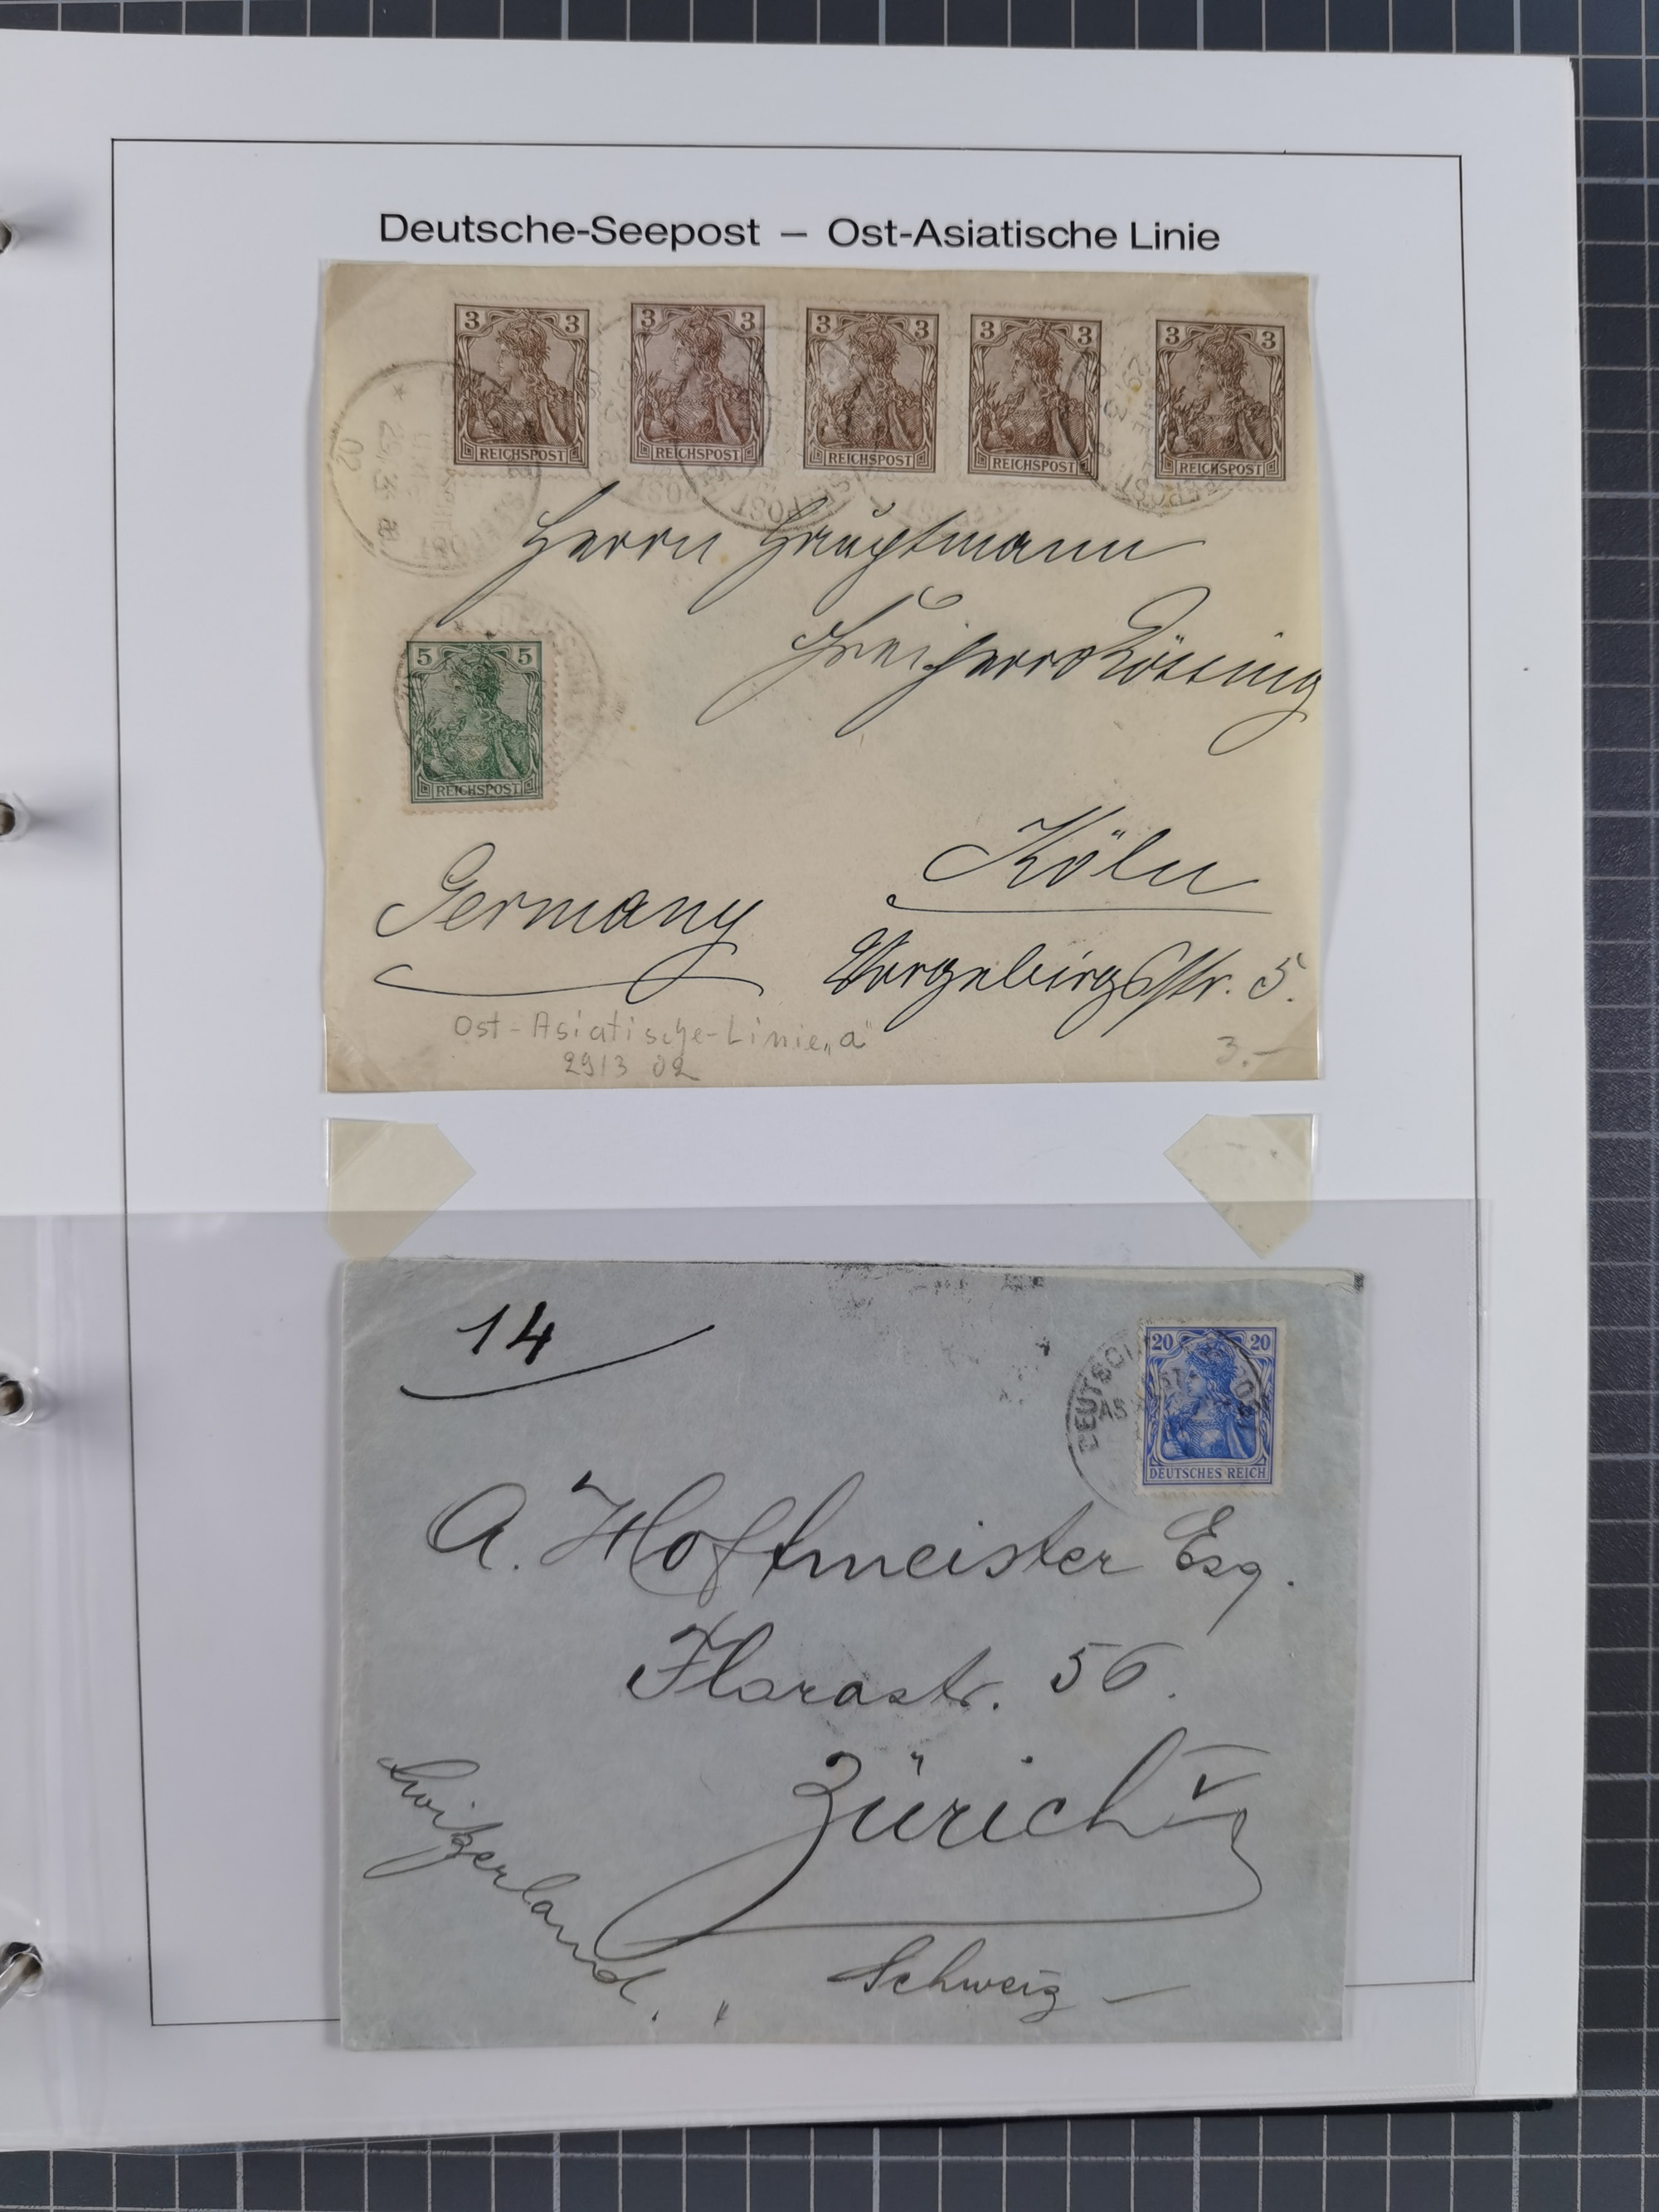 Deutsche-Seepost – Ost-Asiatische Linie
3 3 3 3 3 3 3 3 3 3
REICHSPOST REICHSPOST REICHSPOST REICHSPOST REICHSPOST
29 3 02
Herrn Hauptmann
Freiherr
5 5
REICHSPOST
Köln
Germany
Vorgebirgsstr. 5.
Ost-Asiatische-Linie „a"
29/3 02
3.-
14
20 20
DEUTSCHES REICH
A. Hoffmeister Esq.
Florastr. 56.
Zürich V
Switzerland.
Schweiz –